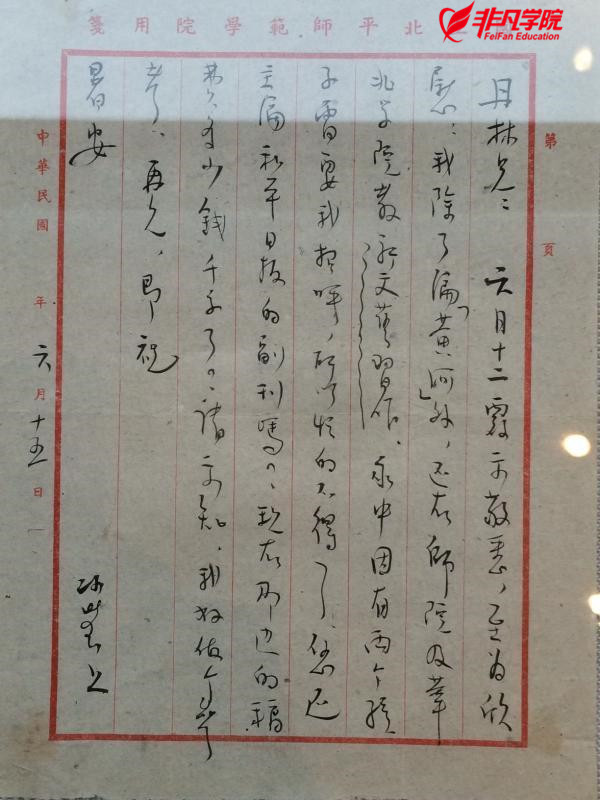 非凡学院
FeiFan Education
北平師範學院用箋
第 頁
丹林兄：六月十二覆示敬悉，至為欣
慰：我除了编「黄河」外，还在師院及華
北学院教新文藝習作，家中因有两个孩
子需要我招呼，所以忙的不得了，您还
主编和平日报的副刊嗎？现在那边的稿
费多少錢千字了？請示知，我好做个参
考，再见，即祝
暑安
冰莹上
中華民國 年 六月十五日